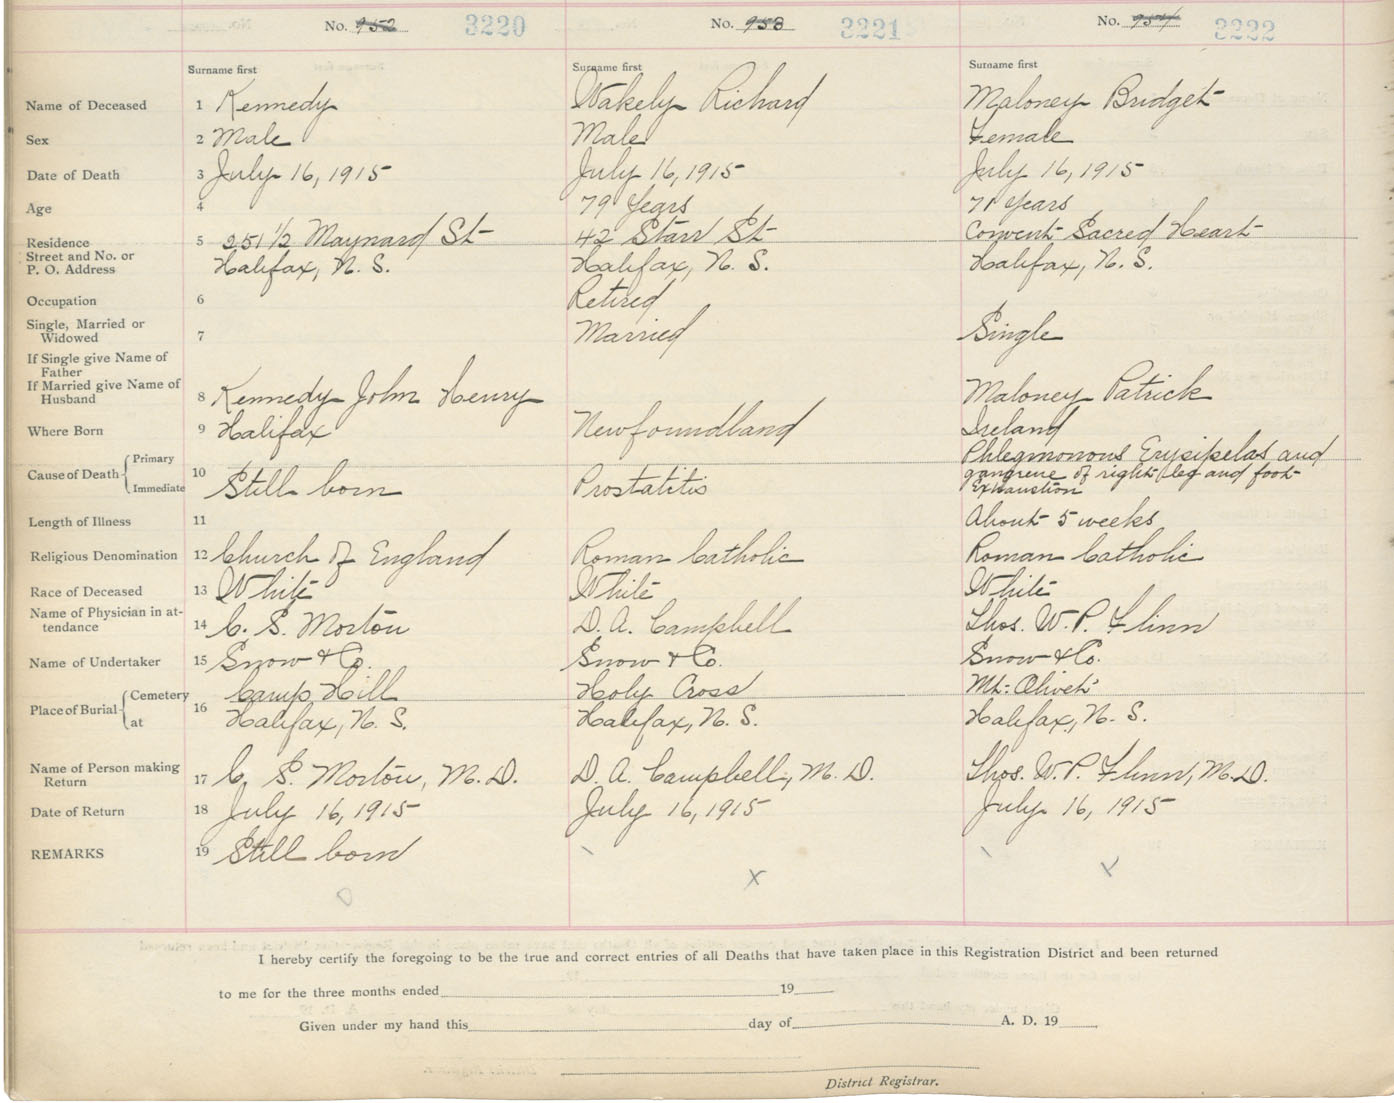 No. 952 3220 No. 953 3221 No. 954 3222
Surname first Surname first Surname first
Name of Deceased 1 Kennedy Wakely Richard Maloney Bridget
Sex 2 Male Male Female
Date of Death 3 July 16, 1915 July 16, 1915 July 16, 1915
Age 4 79 Years 71 Years
Residence 5 251 1/2 Maynard St 42 Starr St Convent Sacred Heart
Street and No. or
P. O. Address Halifax, N. S. Halifax, N. S. Halifax, N. S.
Occupation 6 Retired
Single, Married or
Widowed 7 Married Single
If Single give Name of
Father
If Married give Name of
Husband 8 Kennedy John Henry Maloney Patrick
Where Born 9 Halifax Newfoundland Ireland
Cause of Death { Primary Immediate 10 Still born Prostatitis Phlegmonous Erysipelas and
gangrene of right leg and foot
Exhaustion
Length of Illness 11 About 5 weeks
Religious Denomination 12 Church of England Roman Catholic Roman Catholic
Race of Deceased 13 White White White
Name of Physician in at-
tendance 14 C. S. Morton D. A. Campbell Thos. W. P. Flinn
Name of Undertaker 15 Snow & Co. Snow & Co. Snow & Co.
Place of Burial { Cemetery 16 Camp Hill Holy Cross Mt. Olivet
at Halifax, N. S. Halifax, N. S. Halifax, N. S.
Name of Person making
Return 17 C. S. Morton, M. D. D. A. Campbell, M. D. Thos. W. P. Flinn, M. D.
Date of Return 18 July 16, 1915 July 16, 1915 July 16, 1915
REMARKS 19 Still born
X
I hereby certify the foregoing to be the true and correct entries of all Deaths that have taken place in this Registration District and been returned
to me for the three months ended 19
Given under my hand this day of A. D. 19
District Registrar.